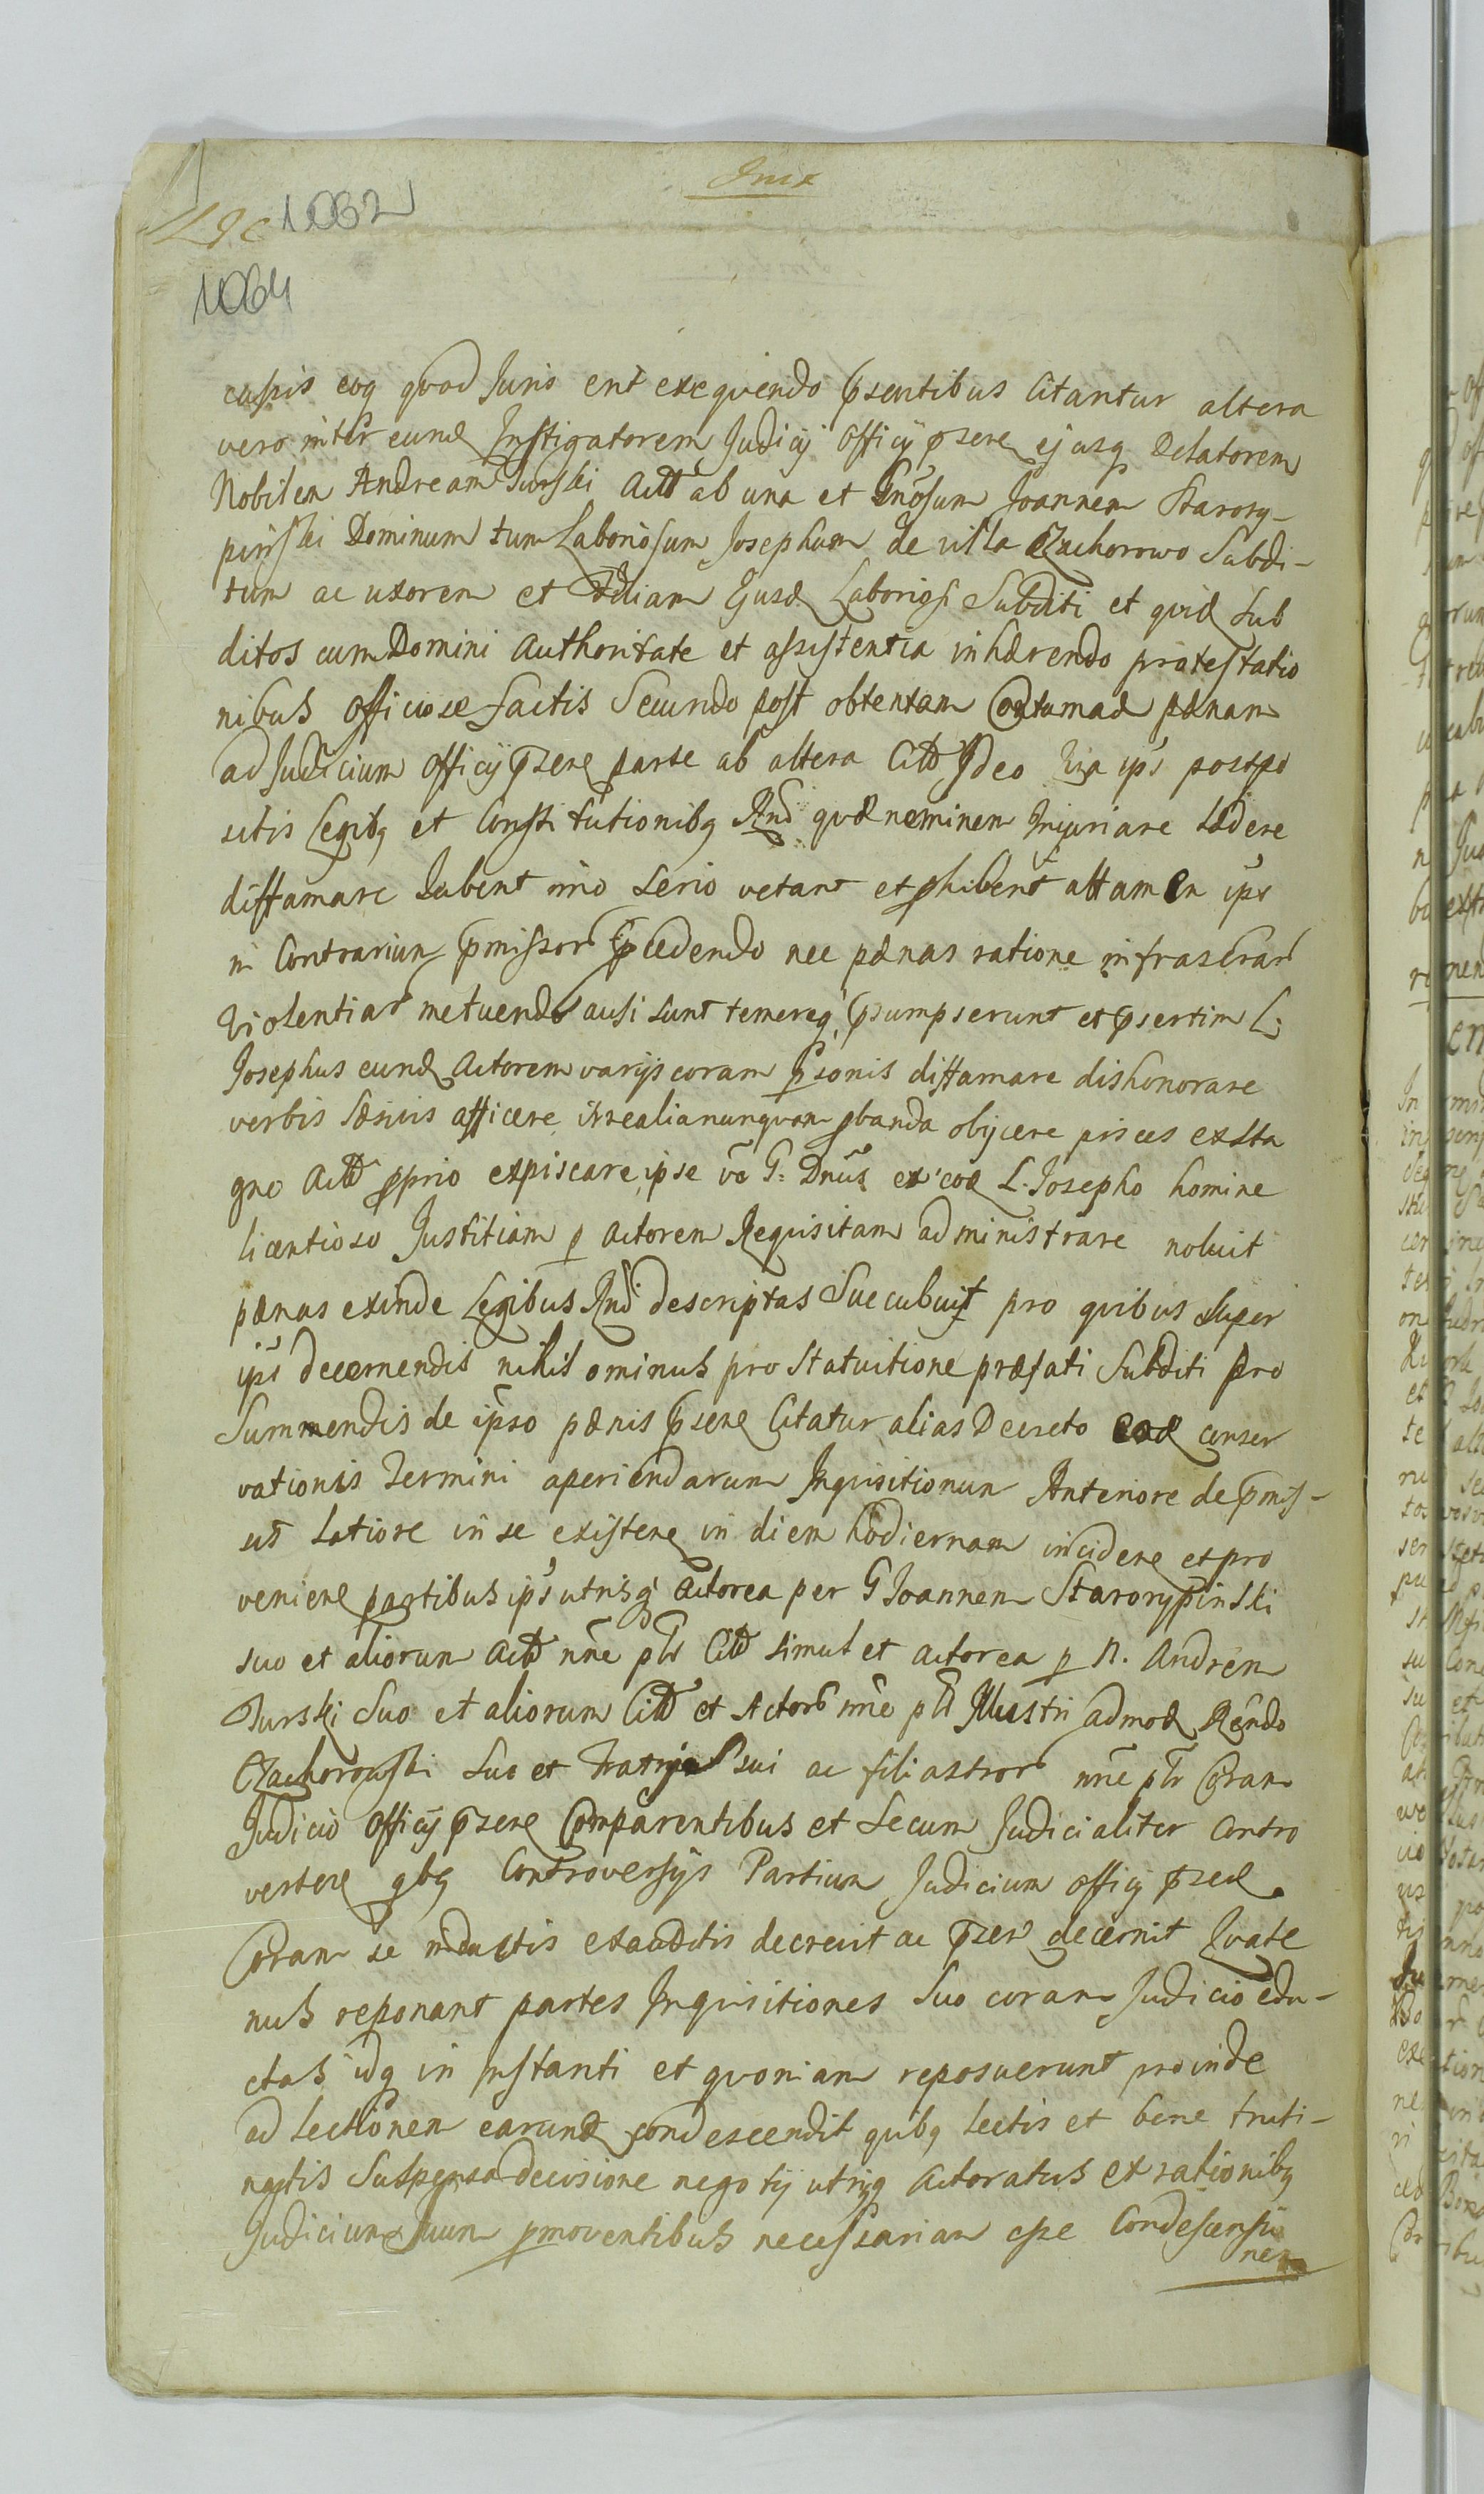 1062
1064
capis eoq quod Juris erit exequendo psentibus Citantur altera
vero inter eund Instigatorem Judicij Officij psene ejusq Delatorem
Nobilem Andream Turski Actt ab una et Gnosum Joannem Starory-
pinski Dominum tum Laboriosum Josephum de villa Czachorowo Subdi-
tum ac uxorem et Ejusd Laboriosi Subditi et quid sub
ditos cum Domini Authoritate et assistentia inhærendo protestatio
nibus officiose factis Secundo post obtentam Contumad pænam
ad Judicium officij psene parte ab altera Citt Ideo quia ipsi postpo
sitis Legibq et Constitutionibq Rni quæ neminem Injuriare Lædere
diffamare Jubent imo serio vetant et phibent attamen ipsi
in Contrarium pmissor pcedendo nec pænas ratione infrascrar
violentiar metuendo ausi sunt temereq psumpserunt et psertim L:
Josephus eund Actorem varijs coram psonis diffamare dishonorare
verbis læsivis afficere irrealia nunquam pbanda obijcere pisces exsta
gno Actt pprio expiscare ipse vo G: Dnus ex eod L. Josepho homine
licentioso Justitiam p actorem Requisitam administrare noluit
pænas exinde Legibus Rni descriptas Succubuit pro quibus super
ipsi decernendis nihilominus pro statuitione præfati Subditi pro
Summendis de ipso pænis psene Citatur alias Decreto eod conser
vationis Termini aperiendarum Inquisitionum Anteriore de pmis-
sis Latiore in se existene in diem hodiernam incidene et pro
veniene partibus ipsis utrisq actorea per G Joannem Starorypinski
suo et aliorum Actt nne pltr Citt simul et actorea p N. Andrem
Turski Suo et aliorum Citt et Actor nne pltr Illustri admod Rendo
Czachorowski suo et Fratris sui ac filiastror nne pltr Coram
Judicio officij psene Comparentibus et Secum Judicialiter Contro
vertene qbq Controversijs Partium Judicium officij psed
Coram se inductis exauditis decrevit ac psen decernit Quate
nus reponant partes Inquisitiones suo coram Judicio edu-
ctas idq in Instanti et quoniam reposuerunt proinde
ad lectionem earund condescendit quibq lectis et bene truti-
natis Suspensa decisione negotij utrijq Actoratus ex rationibq
Judicium suum pmoventibus necessariam esse Condescensio
nem